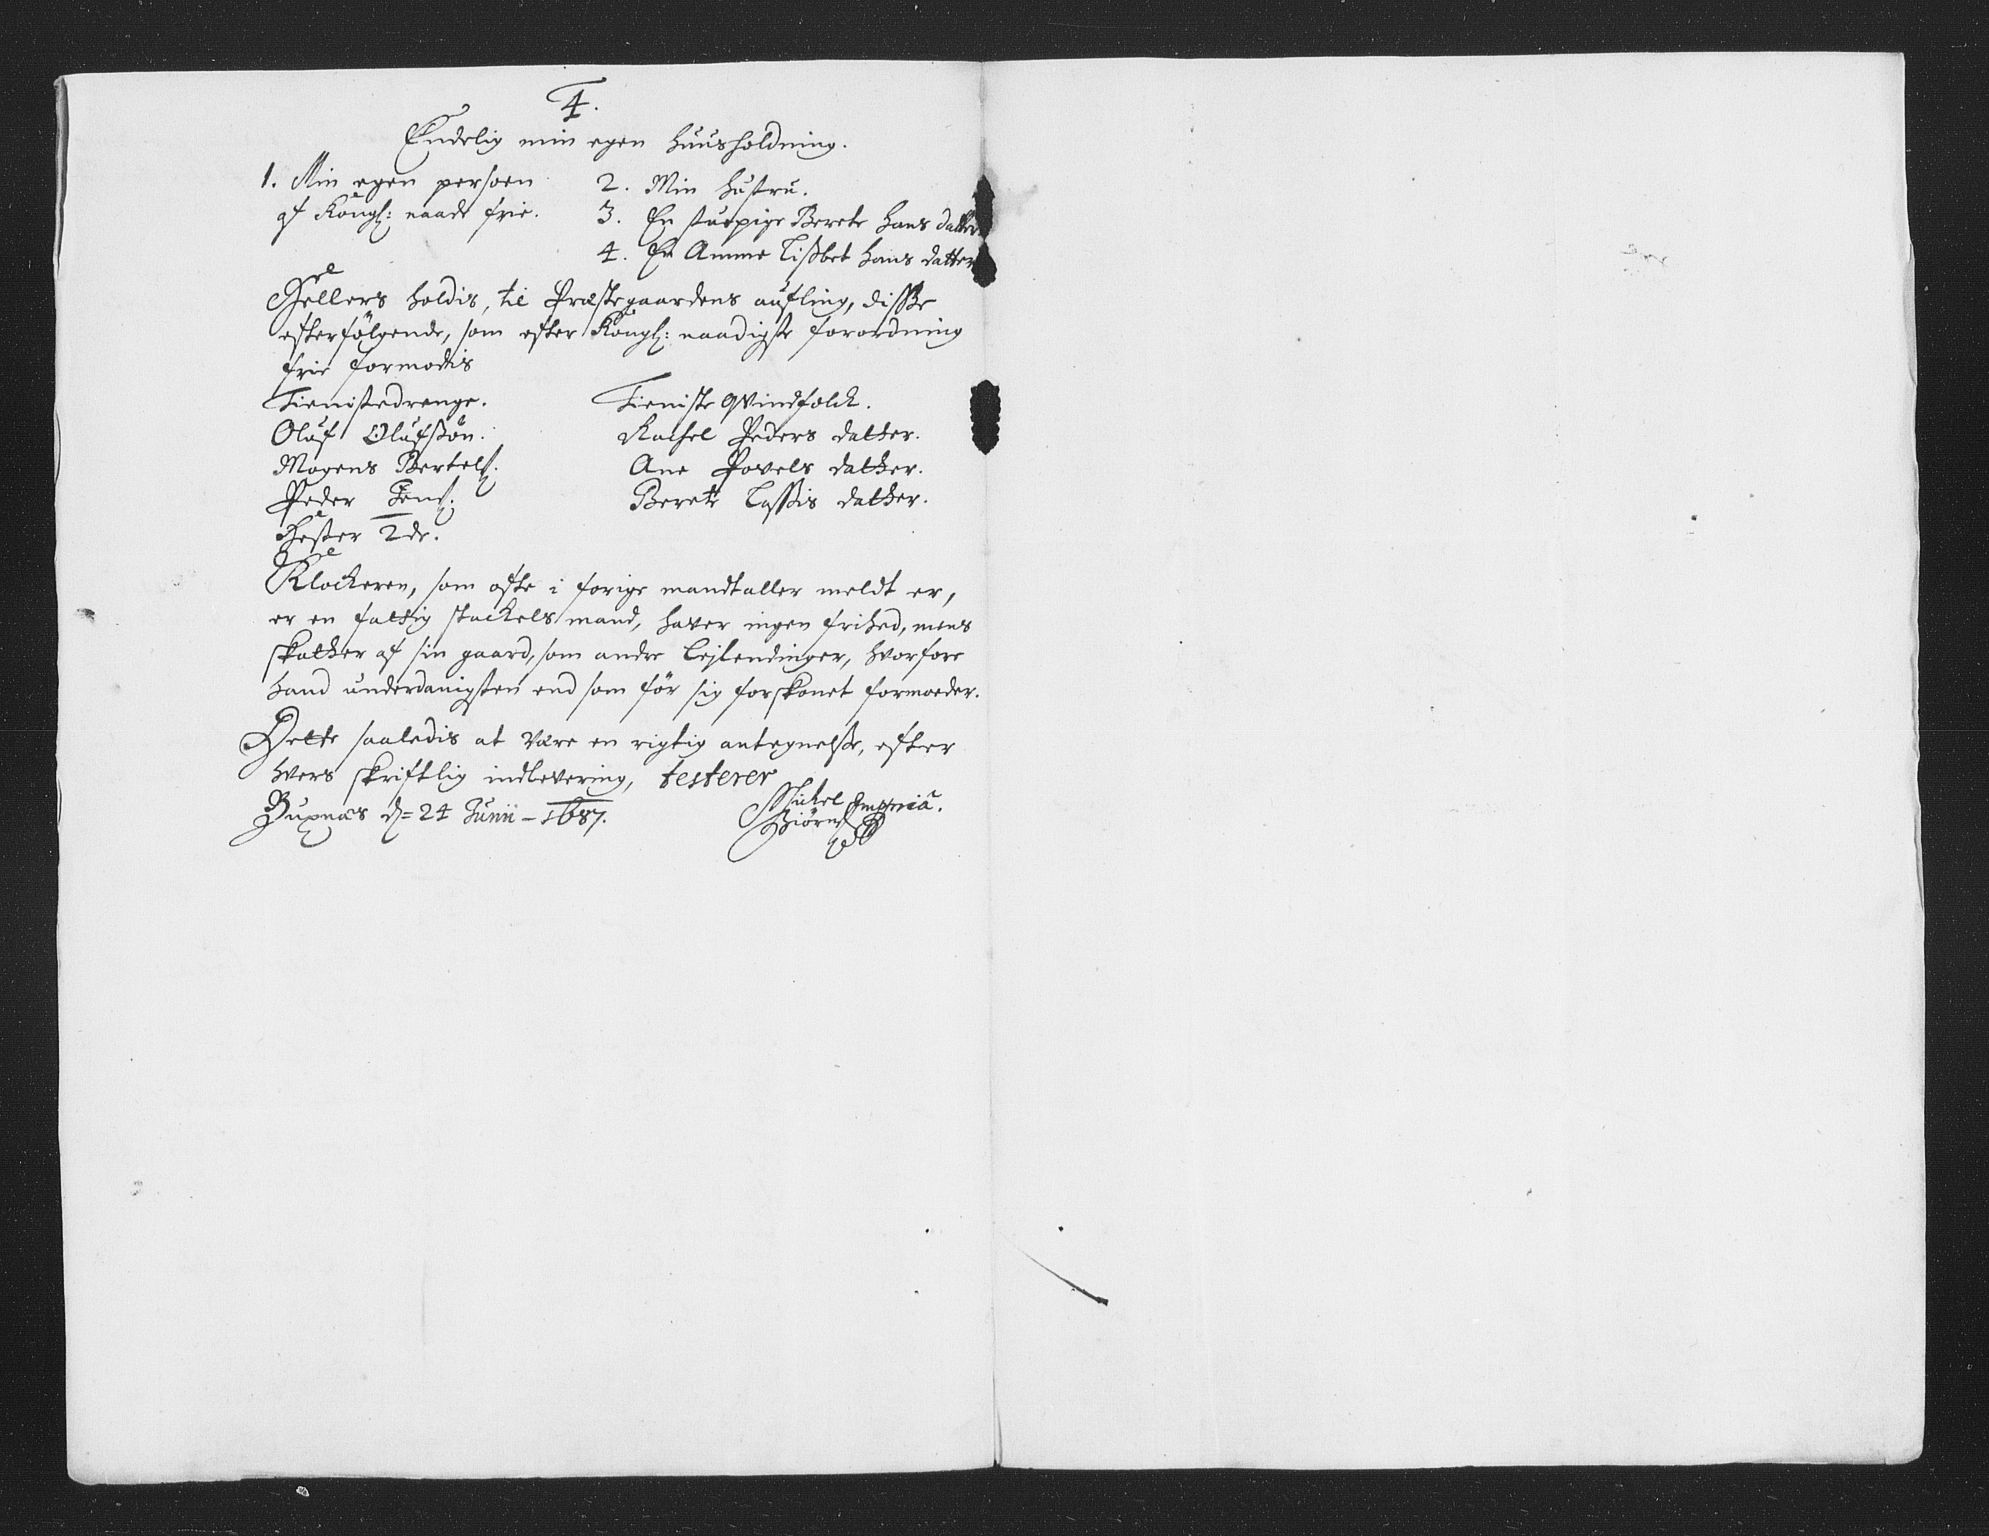 4.
Endelig min egen huusholdning.
1. Min egen persoen
af Kongl: naade frie.
2. Min hustru.
3. En stuepige Berete Hans datter
4. En Amme Lisbet Hans datter
Hellers holdis, til Præstegaardens aufling, disse
efterfölgende, som efter Kongl: naadigste forordning
frie formodis
Tienistedrenge.
Oluf Olufssön.
Mogens Bertels.
Peder Jens.
Hester 2de.
Tieniste Qvindfolck.
Rachel Peders datter.
Ane Povels datter.
Berete Lassis datter.
Klockeren, som ofte i forige mandtaller meldt er,
er en fattig stackels mand, haver ingen frihed, mens
skatter af sin gaard, som andre Lejlendinger, hvorfore
hand underdanigsten end som för sig forskonet formoeder.
Dette saaledis at være en rigtig antegnelse, efter
hvers skriftlig indlevering, testerer
Buxnæs d= 24 Junii - 1687.
Mickel
Biörns